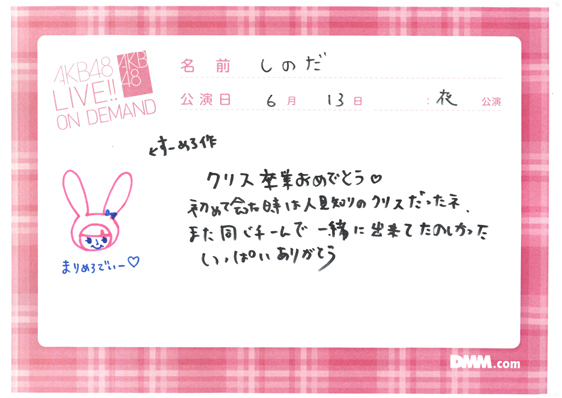 AKB48
LIVE!!
ON DEMAND
AKB
48
名 前 しのだ
公演日 6月 13日 : 夜 公演
←すーめろ作
クリス卒業おめでとう♡
初めて会った時は人見知りのクリスだったネ、
また同じチームで一緒に出来てたのしかった
いっぱいありがとう
まりめろでぃー♡
DMM.com